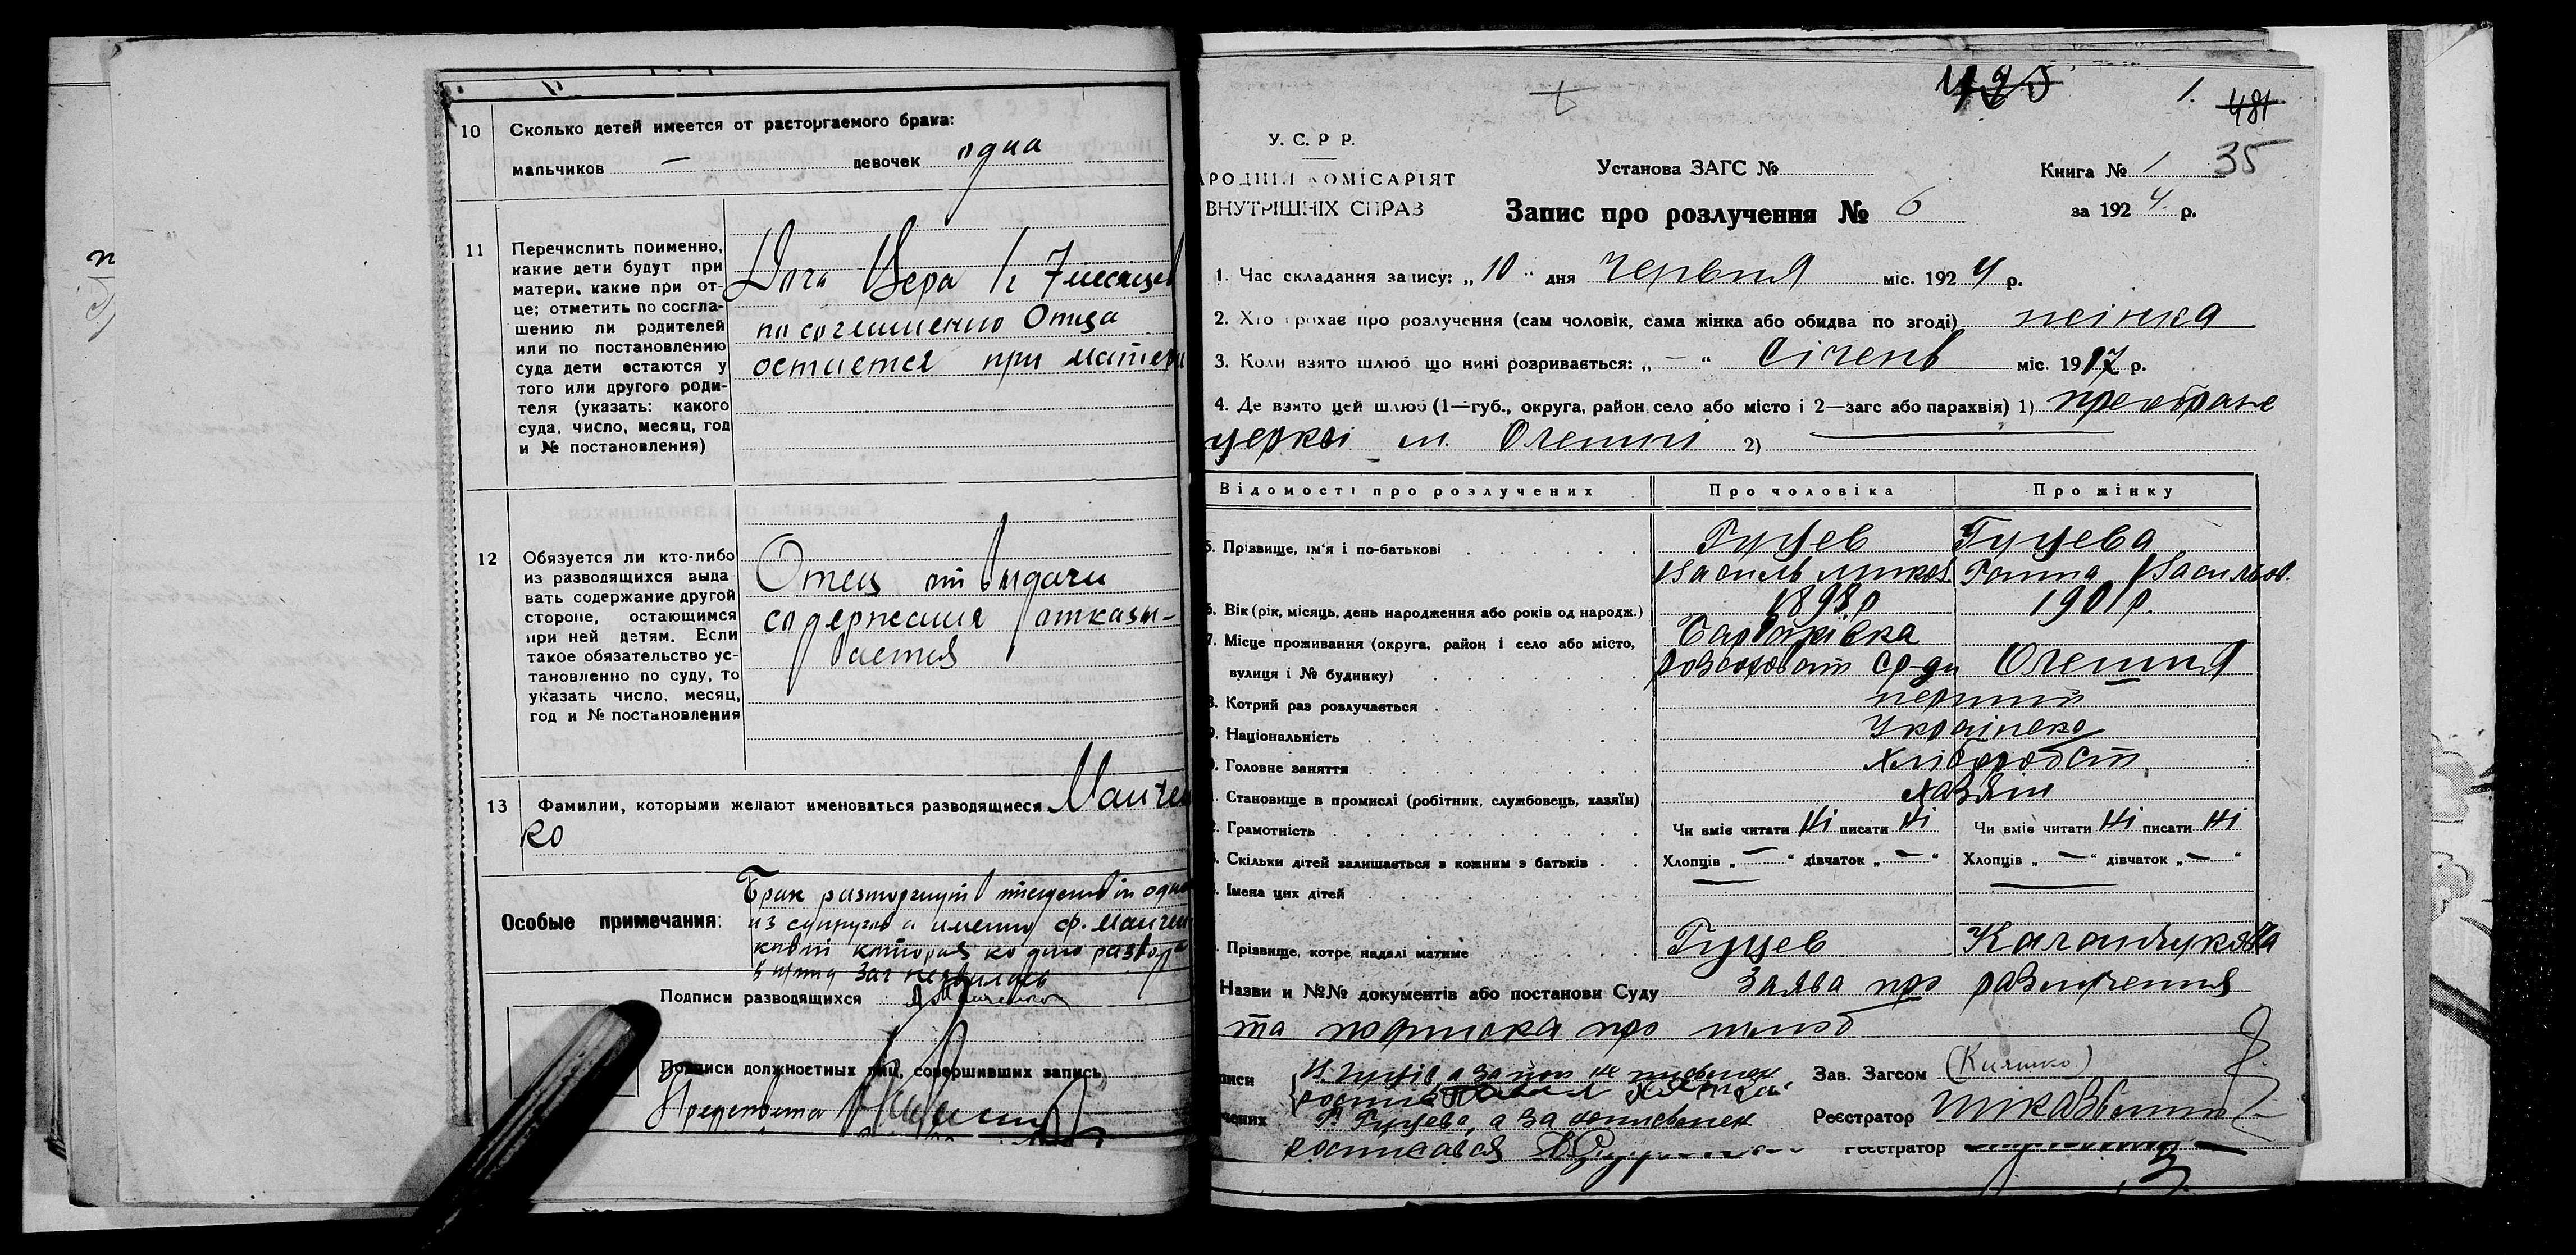 10 Сколько детей имеется от расторгаемого брака:
мальчиков — девочек одна
11 Перечислить поименно,
какие дети будут при
матери, какие при от-
це; отметить по согла-
шению ли родителей
или по постановлению
суда дети остаются у
того или другого роди-
теля (указать: какого
суда, число, месяц, год
и № постановления)
Дочь Вера 7 месяцев
по соглашению Отца
остается при матери
12 Обязуется ли кто-либо
из разводящихся выда
вать содержание другой
стороне, остающимся
при ней детям. Если
такое обязательство ус-
тановленно по суду, то
указать число, месяц,
год и № постановления
Отец от выдачи
содержания отказы-
вается
13 Фамилии, которыми желают именоваться разводящиеся Манчен
ко
Особые примечания:
Брак расторгнут в одно
из супругов а именно ф. Манчен
ковой которая ко дню развода
Загс не явилась
Подписи разводящихся
Подписи должностных лиц, совершивших запись
125
1. 481
35
У. С. Р Р.
РОДНІЙ КОМІСАРІЯТ
ВНУТРІШНІХ СПРАВ
Установа ЗАГС №
Книга № 1
Запис про розлучення № 6
за 1924 р.
1. Час складання запису: „10“ дня червня міс. 1924 р.
2. Хто прохає про розлучення (сам чоловік, сама жінка або обидва по згоді) жінка
3. Коли взято шлюб що нині розривається: „—“ Січень міс. 1917 р.
4. Де взято цей шлюб (1—губ., округа, район, село або місто і 2—загс або парахвія) 1) преображе
церкві м. Олешні 2) —
Відомості про розлучених Про чоловіка Про жінку
5. Прізвище, ім'я і по-батькові Гуцев Гуцева
Василь Миков Ганна Васильов.
6. Вік (рік, місяць, день народження або років од народж.) 1898 р 1901 р.
7. Місце проживання (округа, район і село або місто,
вулиця і № будинку) Олешня
8. Котрий раз розлучається перший
9. Національність Українска
. Головне заняття Хліборобст.
. Становище в промислі (робітник, службовець, хазяїн) хазяїн
. Грамотність Чи вміє читати Ні писати Ні Чи вміє читати Ні писати Ні
. Скільки дітей залишається з кожним з батьків Хлопців „—“ дівчаток „—“ Хлопців „—“ дівчаток „—“
. Імена цих дітей — —
. Прізвище, котре надалі матиме Гуцев
Назви и №№ документів або постанови Суду Заява про разлучення
та подписка про шлюб
писи
чених Г. Гуцева, а за неписьмен
росписався
Зав. Загсом
Реєстратор
Реєстратор